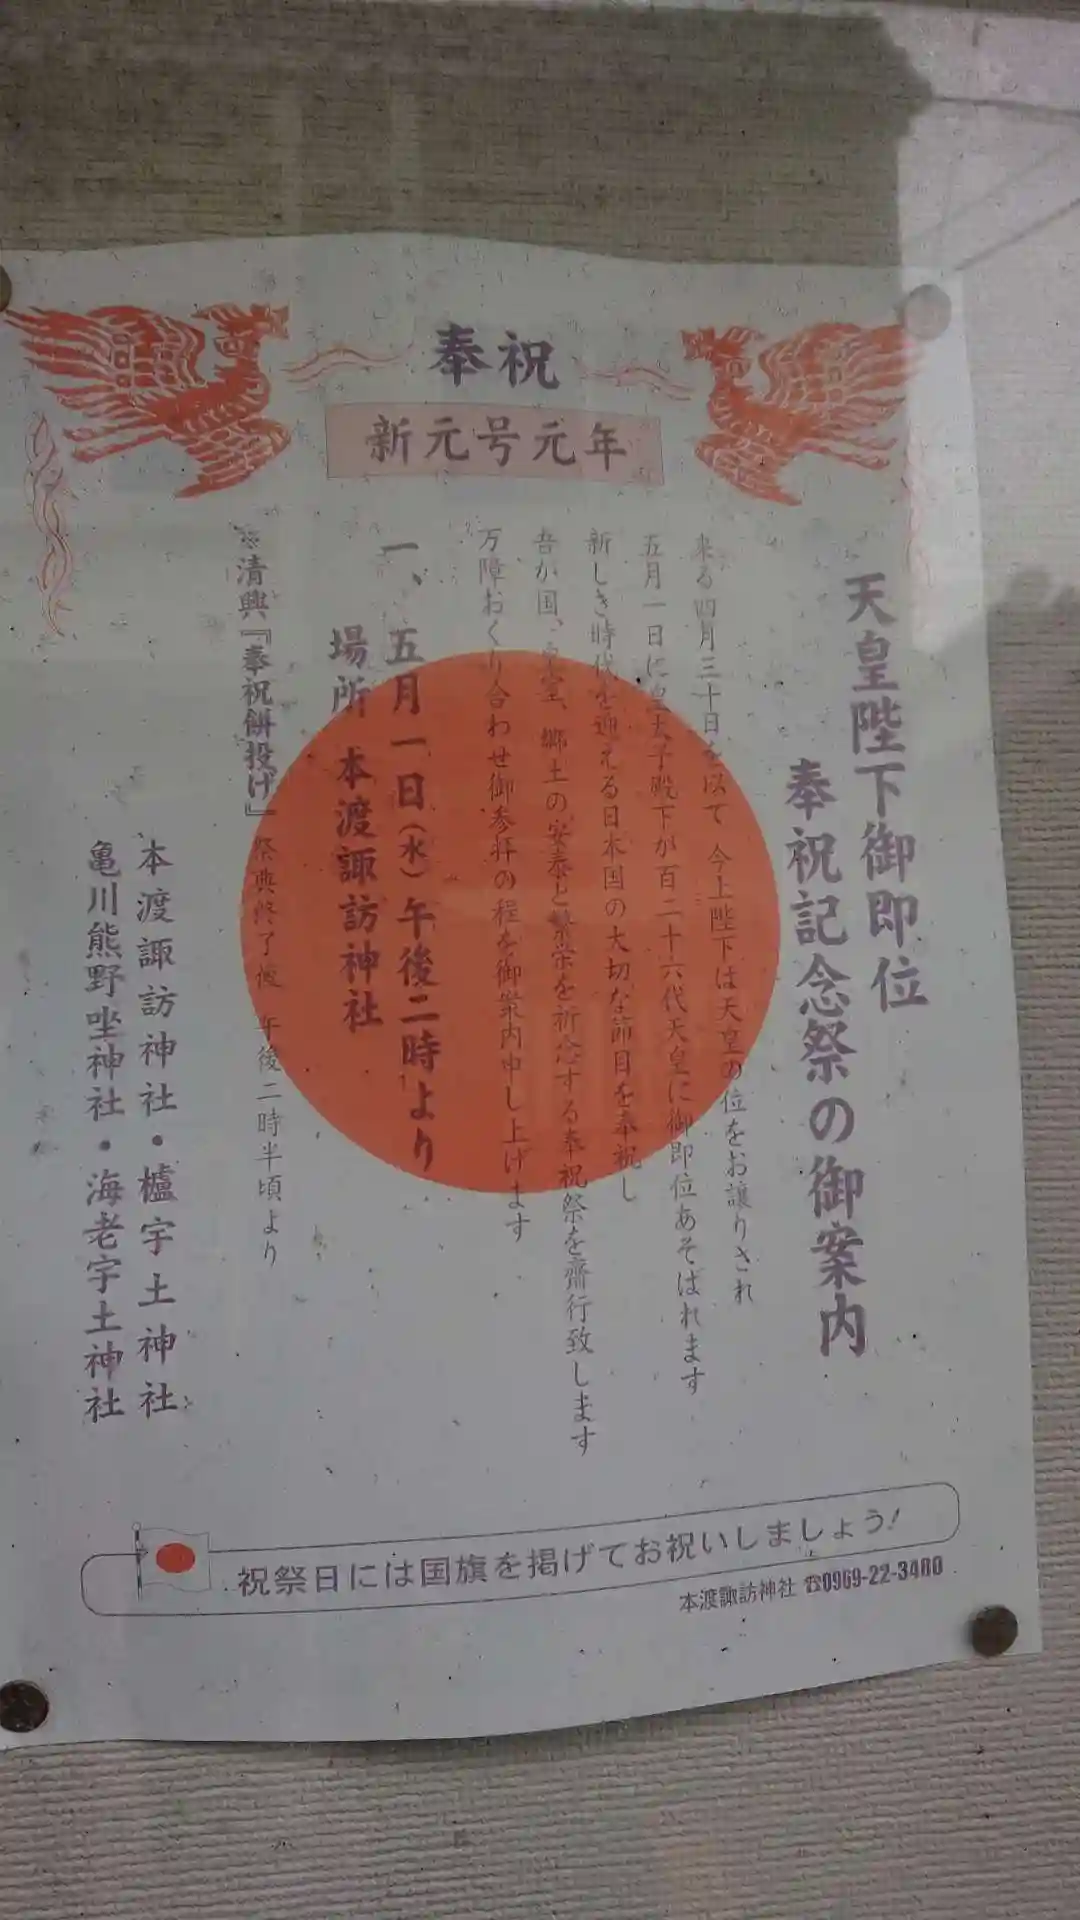 奉祝
新元号元年
天皇陛下御即位
奉祝記念祭の御案内
来る四月三十日を以て 今上陛下は天皇の位をお譲りされ
五月一日に皇太子殿下が百二十六代天皇に御即位あそばれます
新しき時代を迎える日本国の大切な節目を奉祝し
吾が国、皇室、郷土の安泰と繁栄を祈念する奉祝祭を齋行致します
万障おくり合わせ御参拝の程を御案内申し上げます
一、五月一日（水）午後二時より
場所 本渡諏訪神社
※清興『奉祝餅投げ』祭典終了後 午後二時半頃より
本渡諏訪神社・櫨宇土神社
亀川熊野坐神社・海老宇土神社
祝祭日には国旗を掲げてお祝いしましょう！
本渡諏訪神社 ☎0969-22-3480